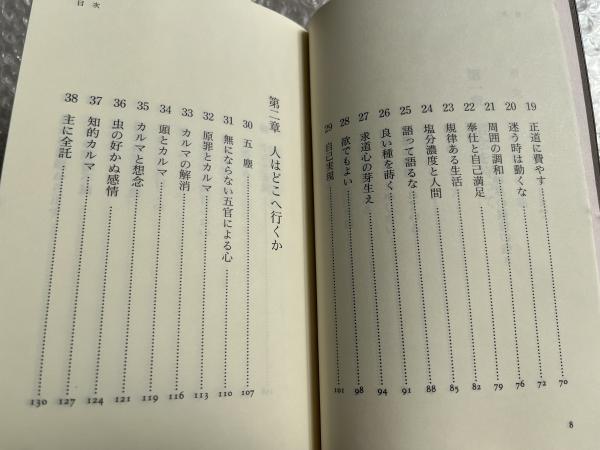 19 正道に費やす 70
20 迷う時は動くな 72
21 周囲の調和 76
22 奉仕と自己満足 79
23 規律ある生活 82
24 塩分濃度と人間 85
25 語って語るな 88
26 良い種を蒔く 91
27 求道心の芽生え 94
28 欲でもよい 98
29 自己実現 101
8
目次
第二章 人はどこへ行くか
30 五塵 107
31 無にならない五官による心 110
32 原罪とカルマ 113
33 カルマの解消 116
34 頭とカルマ 119
35 カルマと想念 121
36 虫の好かぬ感情 124
37 知的カルマ 127
38 主に全託 130